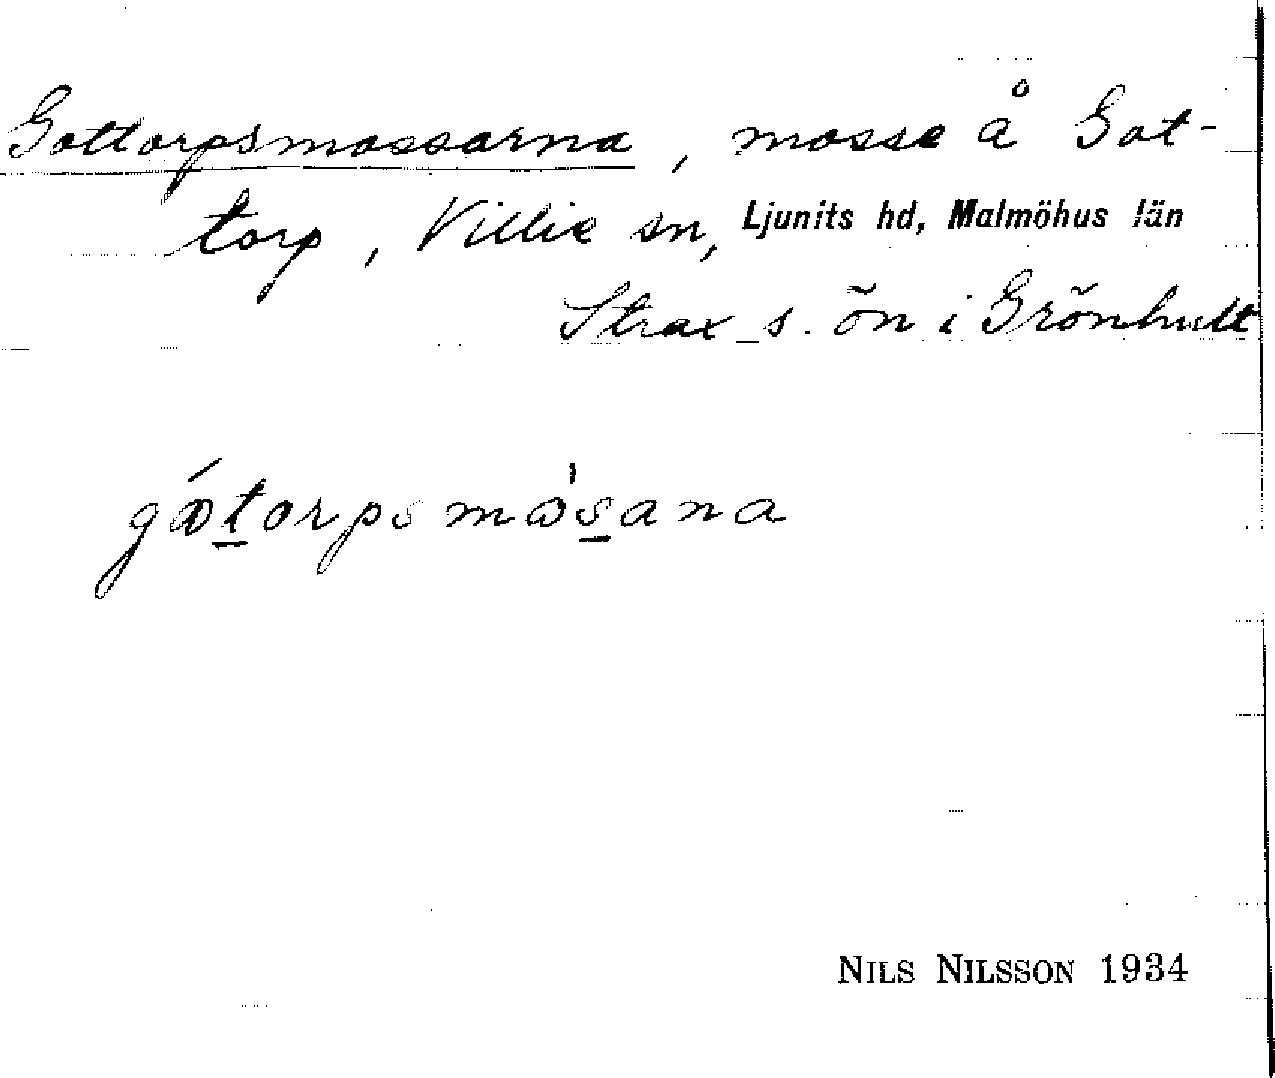 Gottorpsmossarna, mosse å Got-
torp, Villie sn, Ljunits hd, Malmöhus län
Strax s. ön i Grönhult
gótorpsmósana
NILS NILSSON 1934